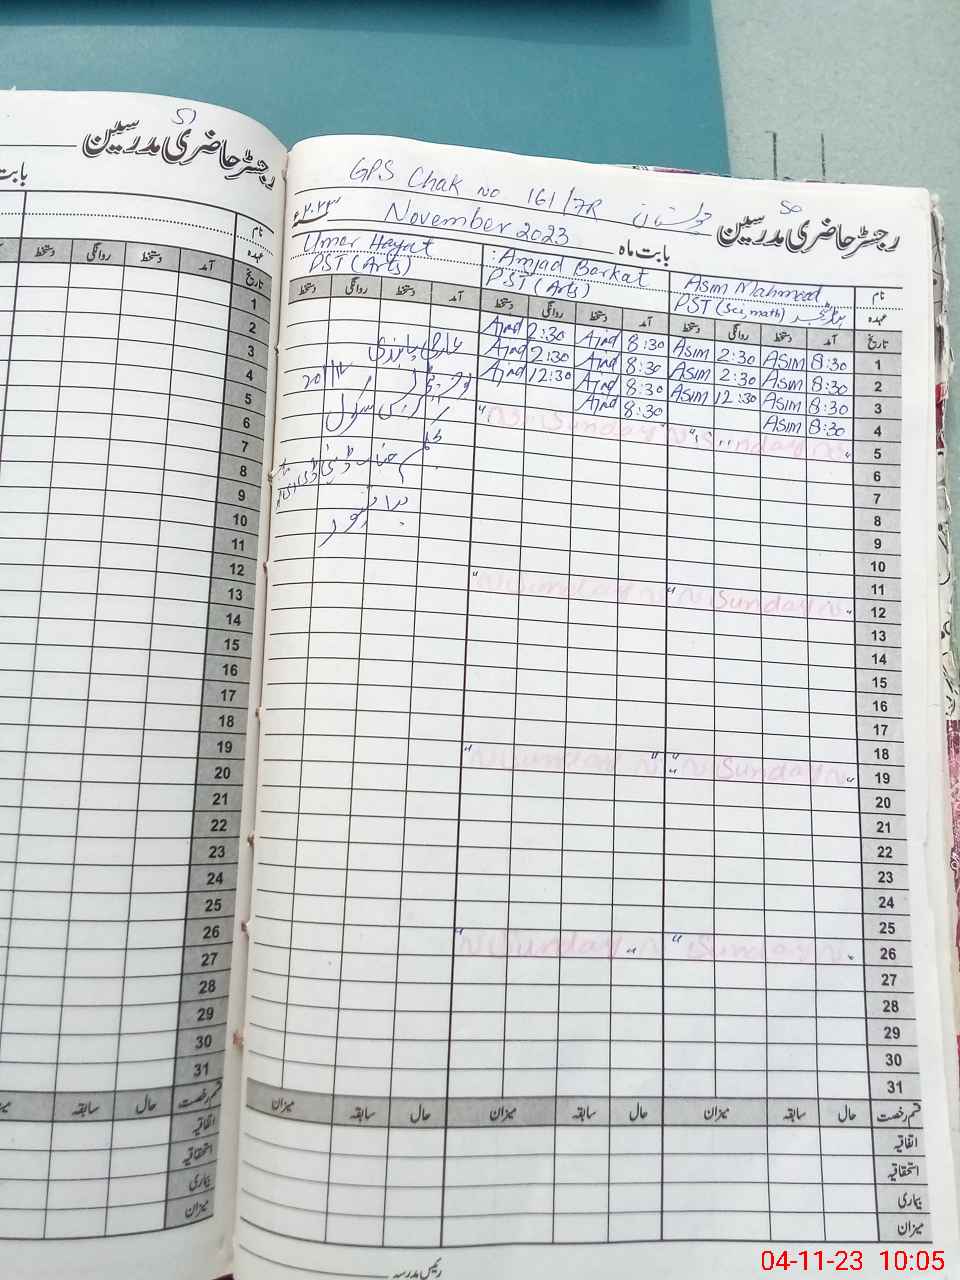 51
رجسٹر حاضری مدرسین
بابت
نام
عہدہ
آمد دستخط روانگی دستخط
تاریخ
1
2
3
4
5
6
7
8
9
10
11
12
13
14
15
16
17
18
19
20
21
22
23
24
25
26
27
28
29
30
31
قسم رخصت حال سابقہ
اتفاقیہ
استحقاقیہ
بیماری
میزان
GPS Chak no 161/7R
50
رجسٹر حاضری مدرسین
بابت ماہ November 2023 ۲۰۲۳ء
نام Asim Mahmood Amjad Barkat Umar Hayat
عہدہ PST (Sci, math) PST (Arts) PST (Arts)
تاریخ آمد دستخط روانگی دستخط آمد دستخط روانگی دستخط آمد دستخط روانگی دستخط
1 8:30 Asim 2:30 Asim 8:30 Ajad 2:30 Ajad
2 8:30 Asim 2:30 Asim 8:30 Ajad 2:30 Ajad
3 8:30 Asim 12:30 Asim 8:30 Ajad 12:30 Ajad
4 8:30 Asim 8:30 Ajad
5 Sunday Sunday
6
7
8
9
10
11
12 Sunday Sunday
13
14
15
16
17
18
19 Sunday Sunday
20
21
22
23
24
25
26 Sunday Sunday
27
28
29
30
31
قسم رخصت حال سابقہ میزان حال سابقہ میزان حال سابقہ میزان
اتفاقیہ
استحقاقیہ
بیماری
میزان
رئیس مدرسہ
04-11-23 10:05